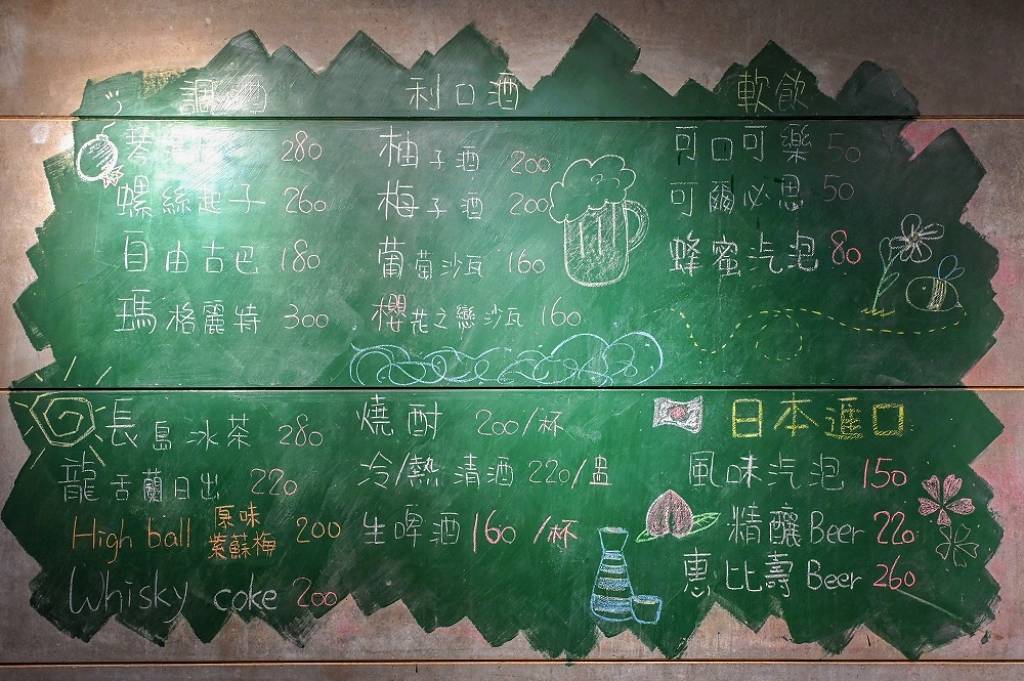 調酒
琴 280
螺絲起子 260
自由古巴 180
瑪格麗特 300
長島冰茶 280
龍舌蘭日出 220
High ball 原味 紫蘇梅 200
Whisky coke 200
利口酒
柚子酒 200
梅子酒 200
葡萄沙瓦 160
櫻花之戀沙瓦 160
燒酎 200/杯
冷/熱清酒 220/盅
生啤酒 160/杯
軟飲
可口可樂 50
可爾必思 50
蜂蜜汽泡 80
日本進口
風味汽泡 150
精釀Beer 220
惠比壽Beer 260